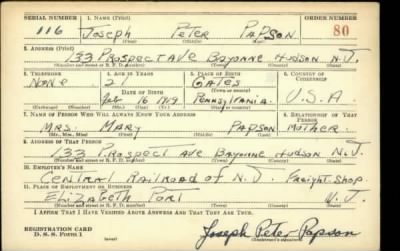 SERIAL NUMBER 1. NAME (Print) ORDER NUMBER
116 JOSEPH PETER PAPSON 80
(First) (Middle) (Last)
2. ADDRESS (Print)
133 PROSPECT AVE BAYONNE HUDSON N.J.
(Number and street or R. F. D. number) (Town) (County) (State)
3. TELEPHONE 4. AGE IN YEARS 5. PLACE OF BIRTH 6. COUNTRY OF CITIZENSHIP
NONE 21 GATES
DATE OF BIRTH (Town or county)
Feb 16 1919 PENNSYLVANIA U.S.A.
(Exchange) (Number) (Mo.) (Day) (Yr.) (State or country)
7. NAME OF PERSON WHO WILL ALWAYS KNOW YOUR ADDRESS 8. RELATIONSHIP OF THAT PERSON
MRS. MARY PAPSON MOTHER
(Mr., Mrs., Miss) (First) (Middle) (Last)
9. ADDRESS OF THAT PERSON
133 PROSPECT AVE BAYONNE HUDSON N.J.
(Number and street or R. F. D. number) (Town) (County) (State)
10. EMPLOYER'S NAME
CENTRAL RAILROAD OF N.J. FREIGHT SHOP
11. PLACE OF EMPLOYMENT OR BUSINESS
ELIZABETH PORT N.J.
(Number and street or R. F. D. number) (Town) (County) (State)
I AFFIRM THAT I HAVE VERIFIED ABOVE ANSWERS AND THAT THEY ARE TRUE.
REGISTRATION CARD
D. S. S. FORM 1 Joseph Peter Papson
(Registrant's signature)